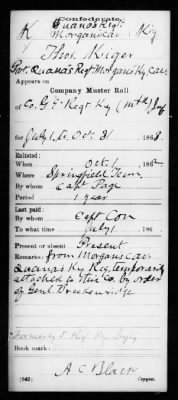 Confederate.
K Morgans Cav. Ky
Thos. Kiger
Pvt. Quanas Regt Morgans Ky Cav.
Appears on
Company Muster Roll
of Co. G 5 Regt Ky (mtd) Inf
for July 1 to Oct 31 1863.
Enlisted:
When Oct 1, 186
Where Springfield Tenn
By whom Capt Page
Period 1 year
Last paid:
By whom Capt Con
To what time July 1, 186
Present or absent Present
Remarks: from Morgans Cav.
Quanas Ky Reg. temporarily
attached to this Co. by order
of Genl. Breckenridge
Formerly 5 Regt Ky Inf
Book mark:
A C Black
(642) Copyist.